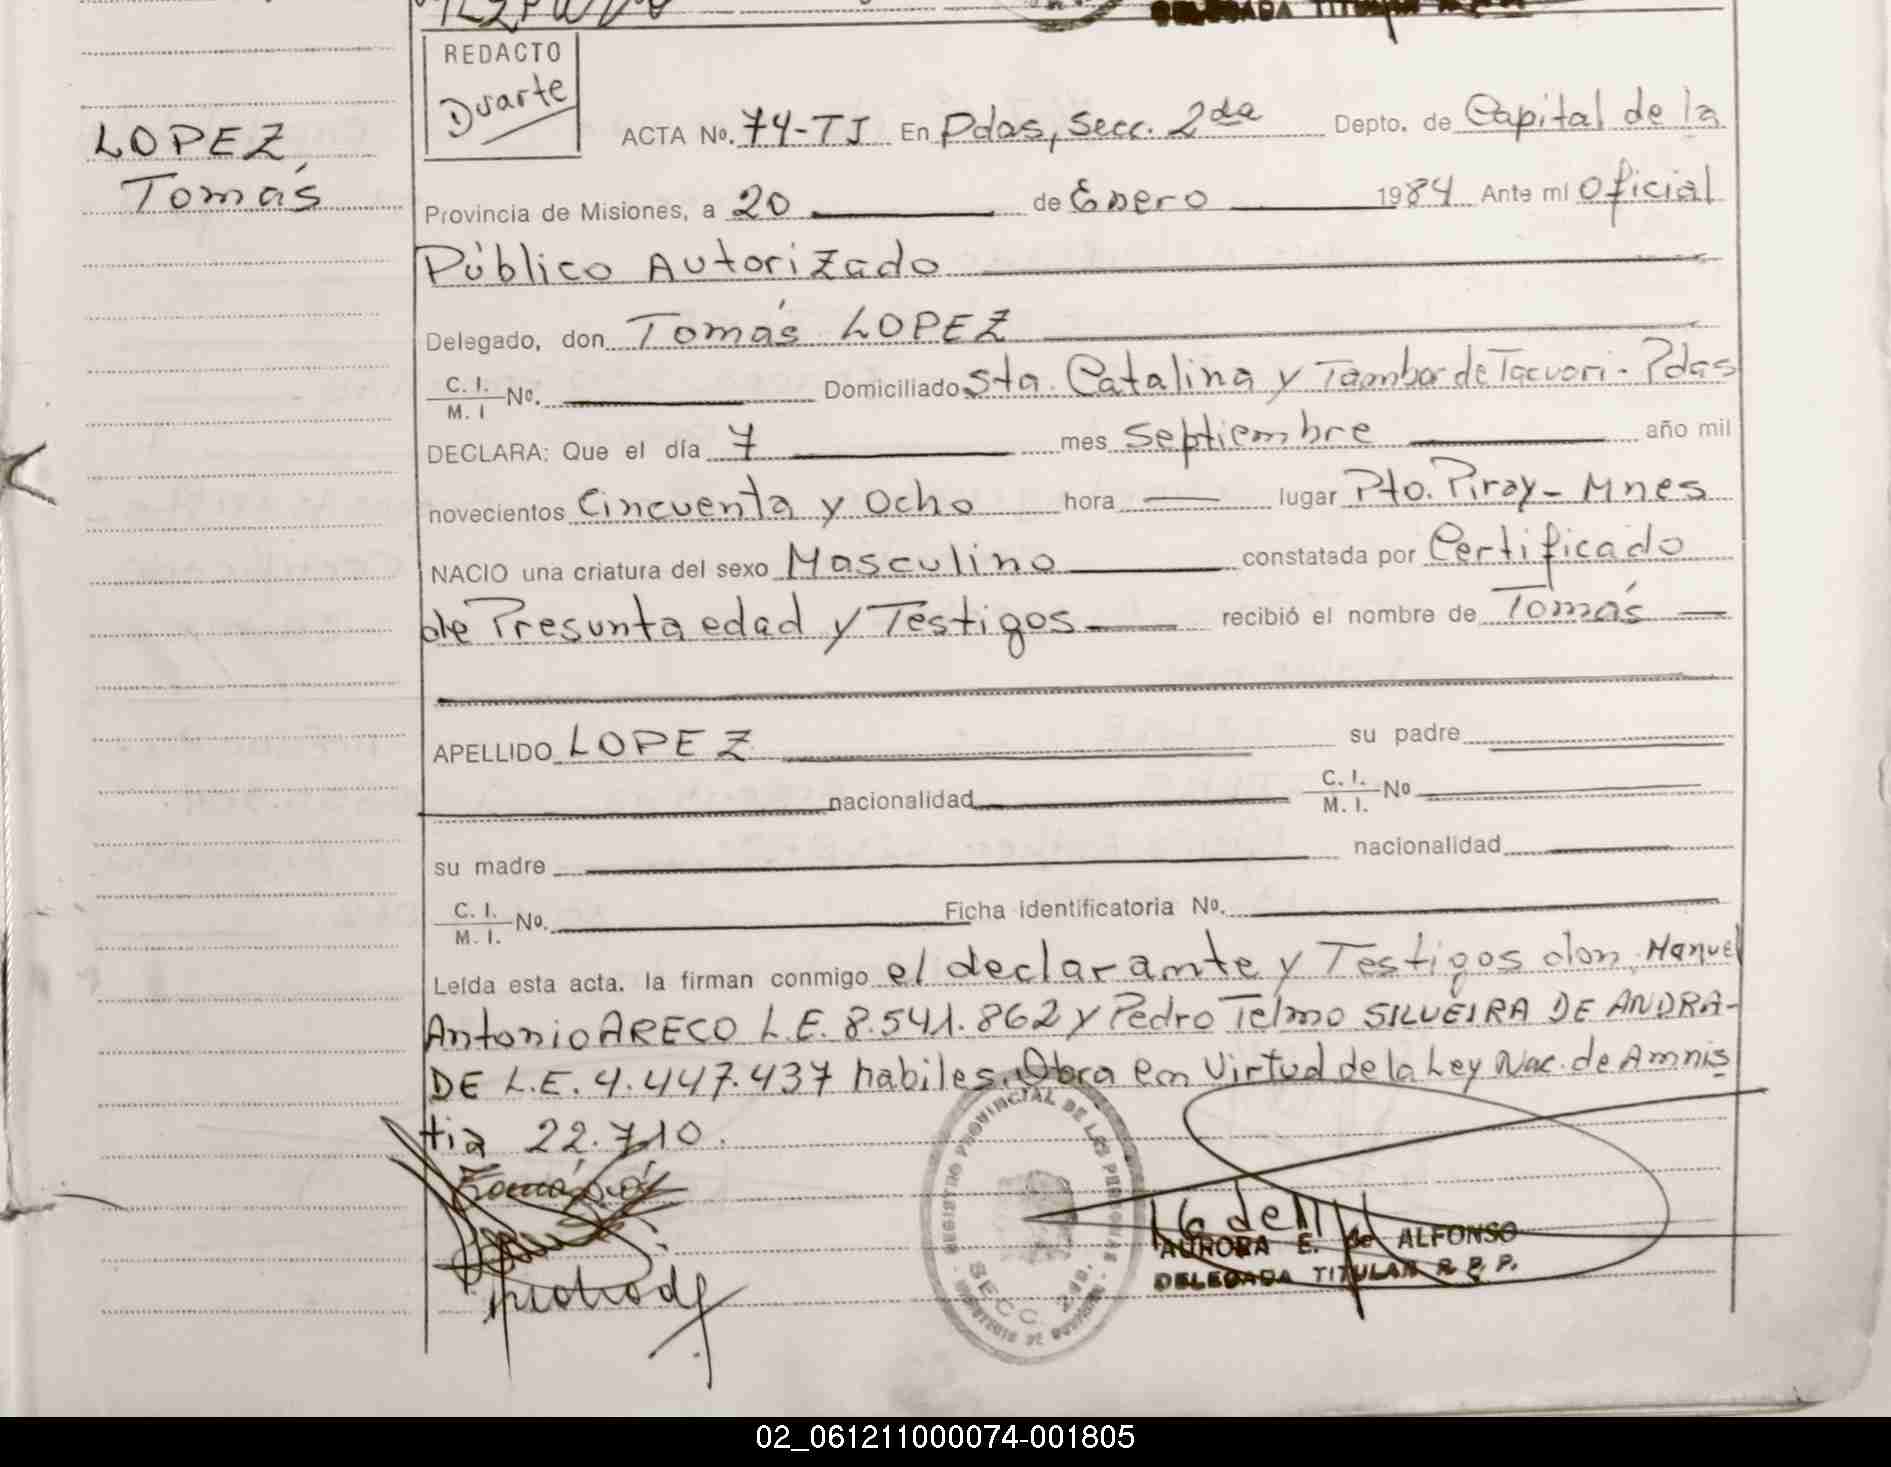 DELEGADA TITULAR R. P. P.
REDACTO
Duarte
LOPEZ
Tomás
ACTA No. 74-TI En Pdas, Secc. 2da Depto. de Capital de la
Provincia de Misiones, a 20 de Enero 1984 Ante mi Oficial
Público Autorizado
Delegado, don Tomás LOPEZ
C. I. M. I No. Domiciliado Sta. Catalina y Tambor de Tacuari - Pdas
DECLARA: Que el día 7 mes Septiembre año mil
novecientos Cincuenta y Ocho hora lugar Pto. Piray - Mnes
NACIO una criatura del sexo Masculino constatada por Certificado
de Presunta edad y Testigos recibió el nombre de Tomás
APELLIDO LOPEZ su padre
nacionalidad C. I. M. I. No
su madre nacionalidad
C. I. M. I. No. Ficha identificatoria No.
Leída esta acta. la firman conmigo el declarante y Testigos don Manuel
Antonio ARECO L.E. 8.541.862 y Pedro Telmo SILVEIRA DE ANDRA-
DE L.E. 4.447.437 habiles. Obra en Virtud de la Ley Nac. de Amnis
tia 22.710.
REGISTRO PROVINCIAL DE LAS PERSONAS
SECC. 2da.
AURORA E. de ALFONSO
DELEGADA TITULAR R. P. P.
02_061211000074-001805